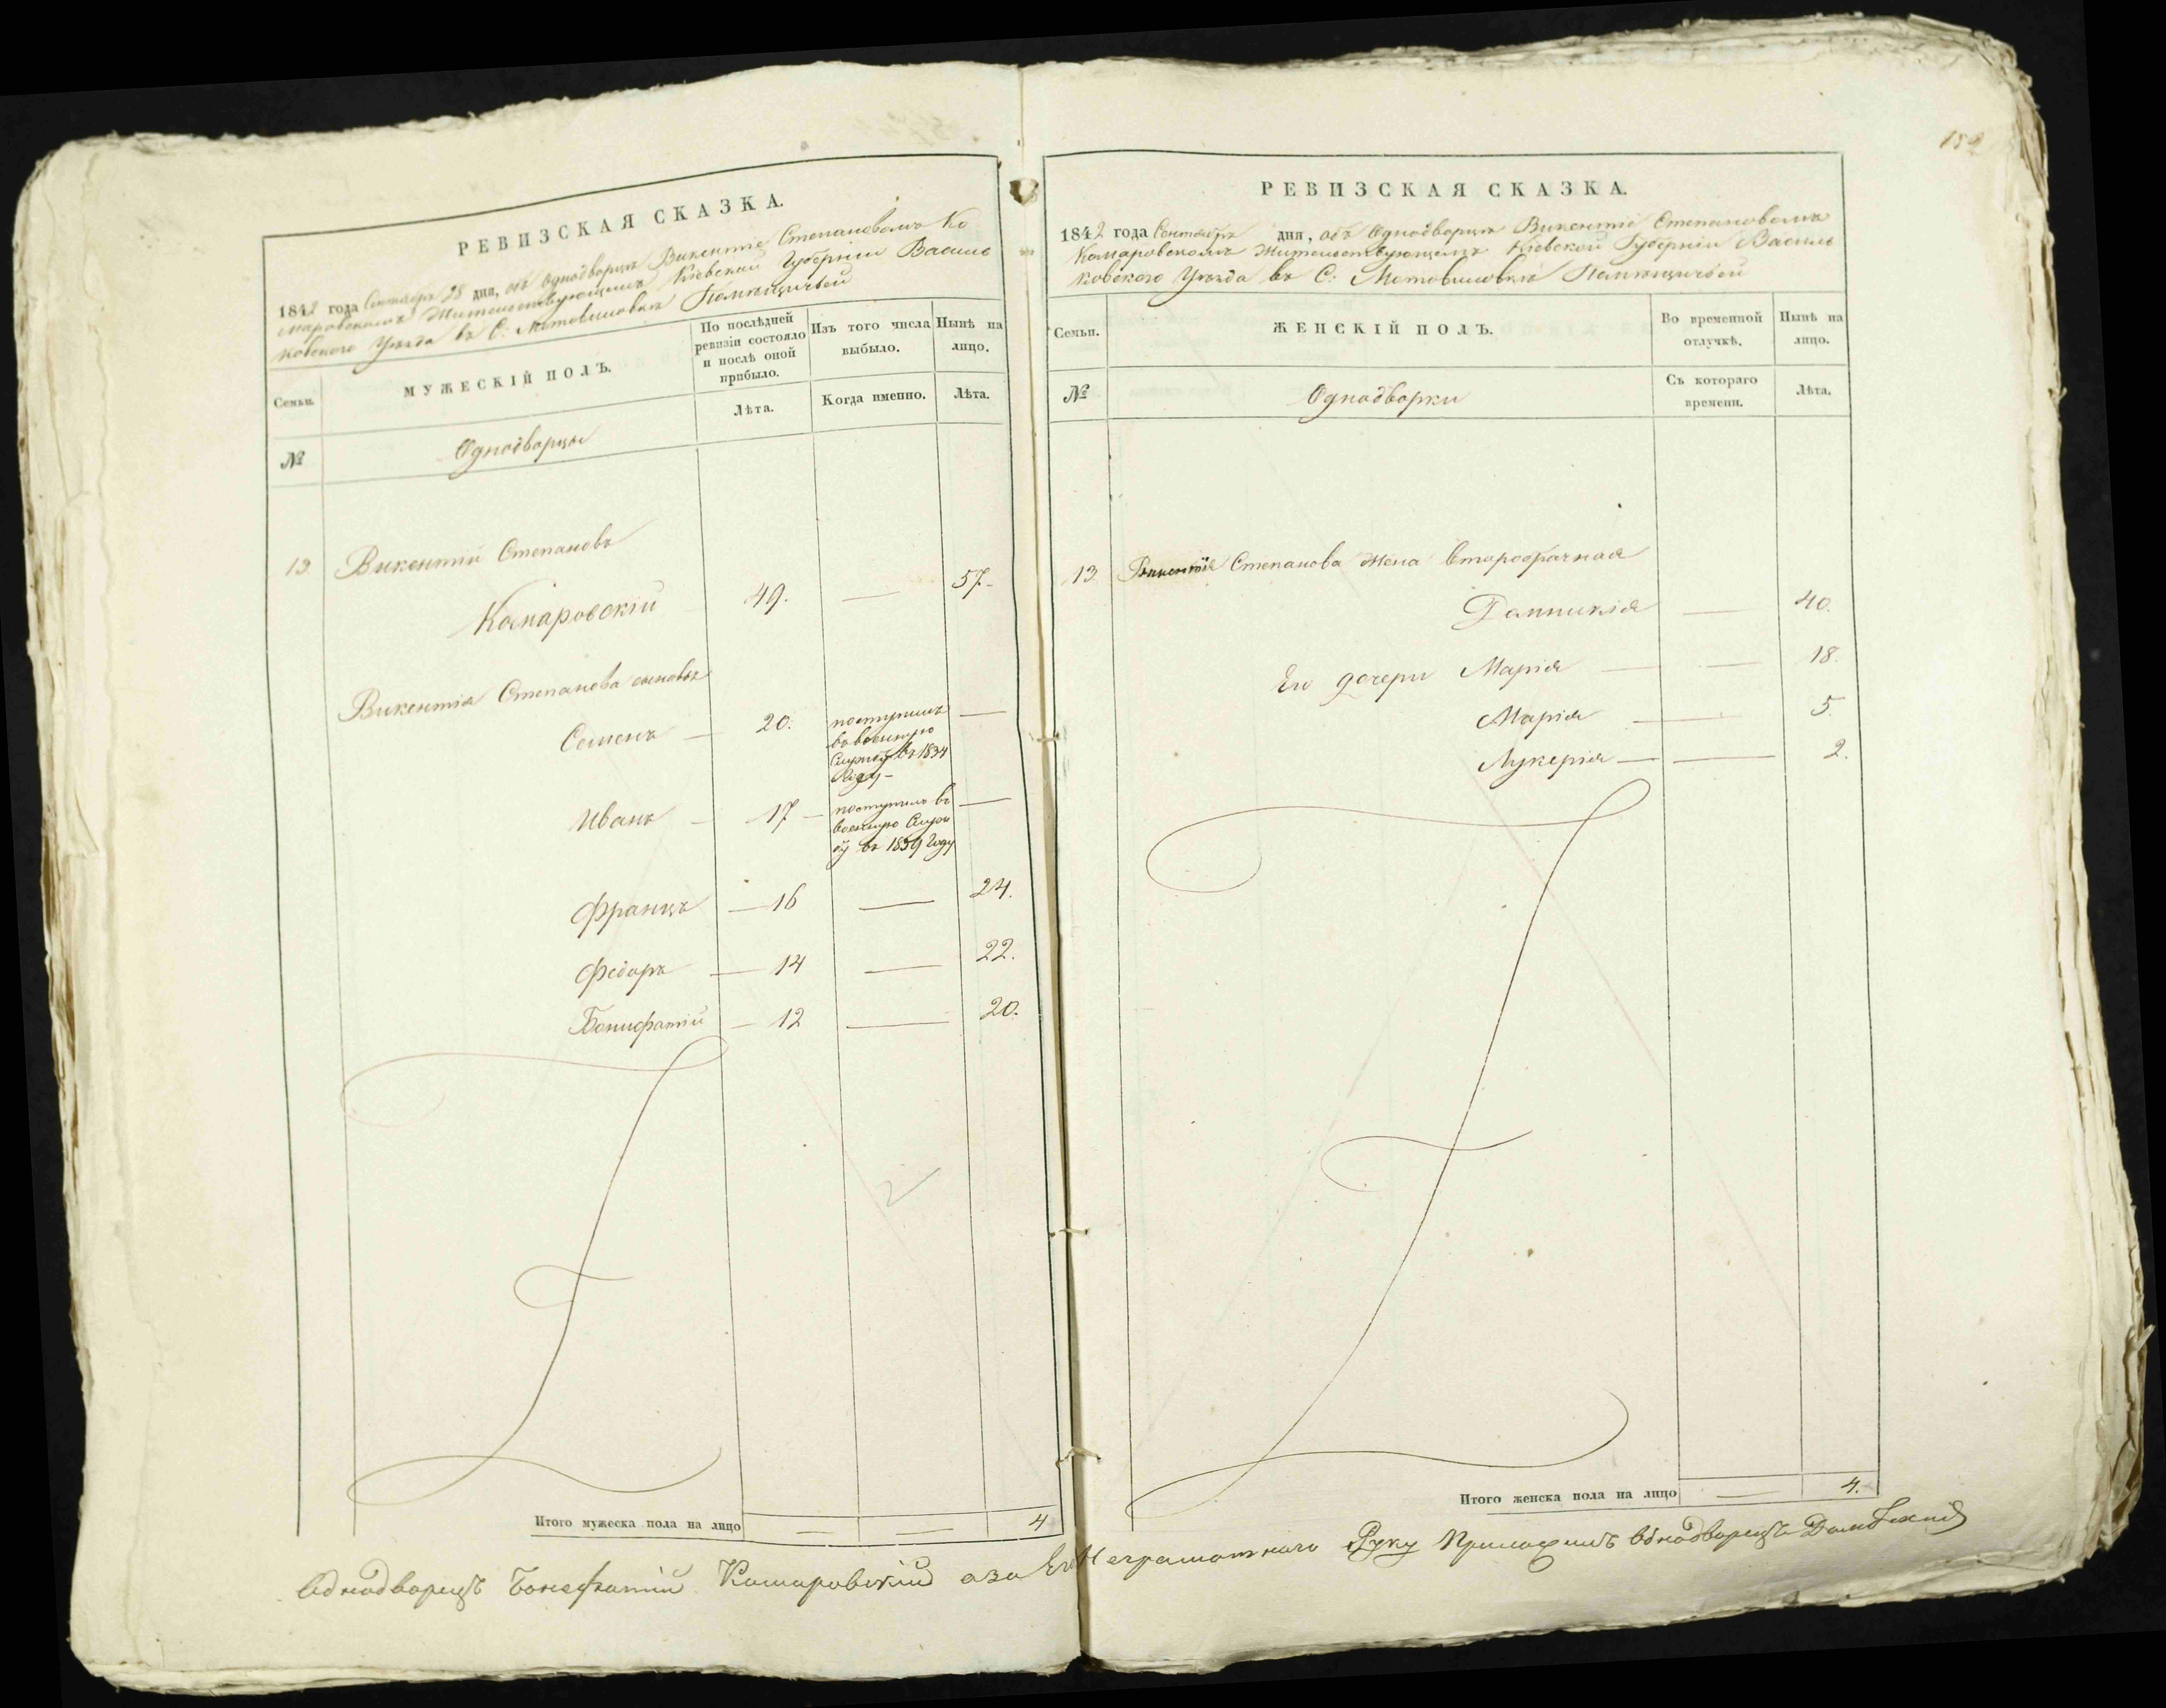 РЕВИЗСКАЯ СКАЗКА.
1842 года Сентября 28 дня, объ однодворцѣ Викентіе Степановомъ Ко
маровскомъ Жительствующемъ Кіевской Губерніи Василь
ковскаго Уѣзда въ С: Мотовиловкѣ Помѣщичьей
Семьи.
МУЖЕСКІЙ ПОЛЪ.
По послѣдней ревизіи состояло и послѣ оной прибыло.
Изъ того числа выбыло.
Нынѣ на лицо.
Лѣта.
Когда именно.
Лѣта.
№
Однодворцы
13. Викентій Степановъ
Комаровскій 49. — 57.
Викентія Степанова сыновья
Семенъ — 20. поступилъ
въ военную
Службу въ 1834
Году —
Иванъ — 17 — поступилъ въ
военную Служ
бу въ 1839 Году
Францъ — 16 — 24.
Федоръ — 14 — 22.
Бонифатій — 12 — 20.
Итого мужеска пола на лицо 4
152
РЕВИЗСКАЯ СКАЗКА.
1842 года Сентября дня, объ Однодворцѣ Викентіе Степановомъ
Комаровскомъ Жительствующемъ Кіевской Губерніи Василь
ковского Уѣзда въ С: Мотовиловкѣ Помѣщичьей
Семьи.
ЖЕНСКІЙ ПОЛЪ.
Во временной отлучкѣ.
Нынѣ на лицо.
№
Однодворки
Съ котораго времени.
Лѣта.
13. Викентія Степанова Жена второбрачная
— 40.
Его дочери Марія — 18.
Марія — 5.
Лукерія — 2.
Итого женска пола на лицо — 4.
Однодворецъ Бонефатій Комаровскій а за Его Неграмотнаго Руку Приложилъ Однодворецъ